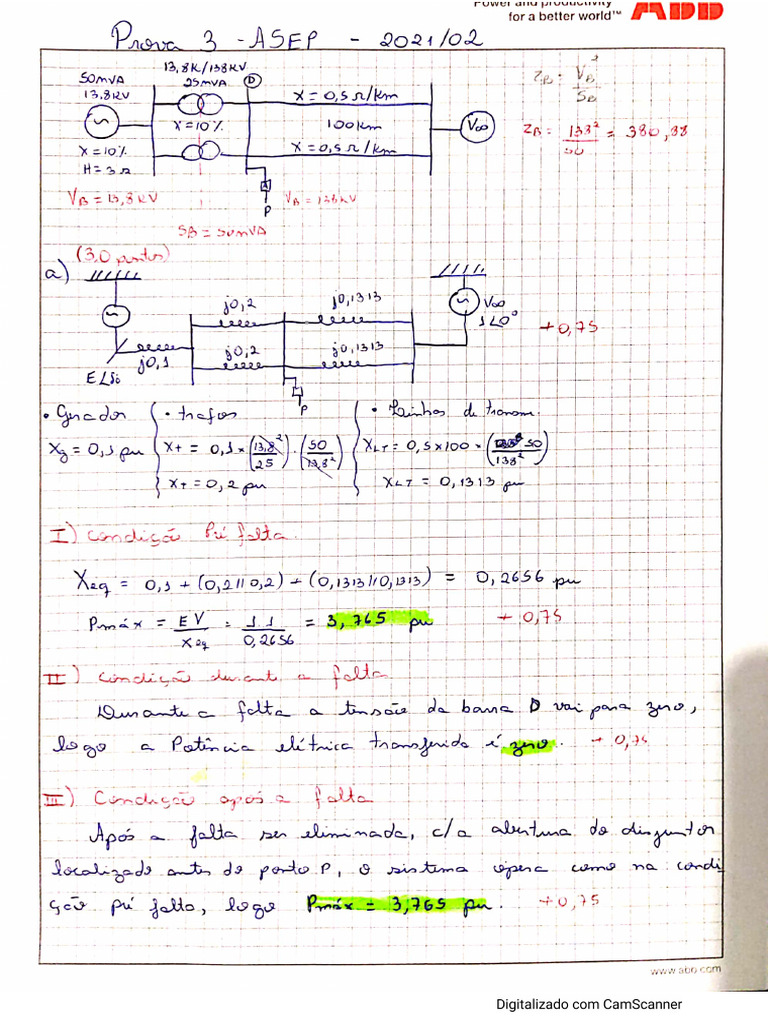 Power and productivity
for a better world™ ABB
Prova 3 - ASEP - 2021/02
50MVA
13,8KV
X=10%
H=3Ω
13,8K/138KV
25MVA
X=10%
D
X=0,5Ω/km
100km
X=0,5Ω/km
V∞
P
VB=13,8KV
VB=138KV
SB=50MVA
ZB: VB²/SB
ZB: 138²/50 = 380,88
(3,0 pontos)
a)
j0,1
E∠δ°
j0,2
j0,2
j0,1313
j0,1313
P
V∞
1∠0°
+0,75
• Gerador
Xg = 0,1 pu
• trafos
XT = 0,1 × (13,8²/25) . (50/13,8²)
XT = 0,2 pu
• Linhas de transm.
XLT = 0,5×100 × (50/138²)
XLT = 0,1313 pu
I) Condição Pré falta.
Xeq = 0,1 + (0,2//0,2) + (0,1313//0,1313) = 0,2656 pu
Pmáx = EV/Xeq = 1.1/0,2656 = 3,765 pu + 0,75
II) Condição durante a falta
Durante a falta a tensão da barra D vai para zero,
logo a Potência elétrica transferida é zero. + 0,75
III) Condição após a falta
Após a falta ser eliminada, c/a abertura do disjuntor
localizado antes do ponto P, o sistema opera como na condi
ção pré falta, logo Pmáx = 3,765 pu. +0,75
www.abb.com
Digitalizado com CamScanner